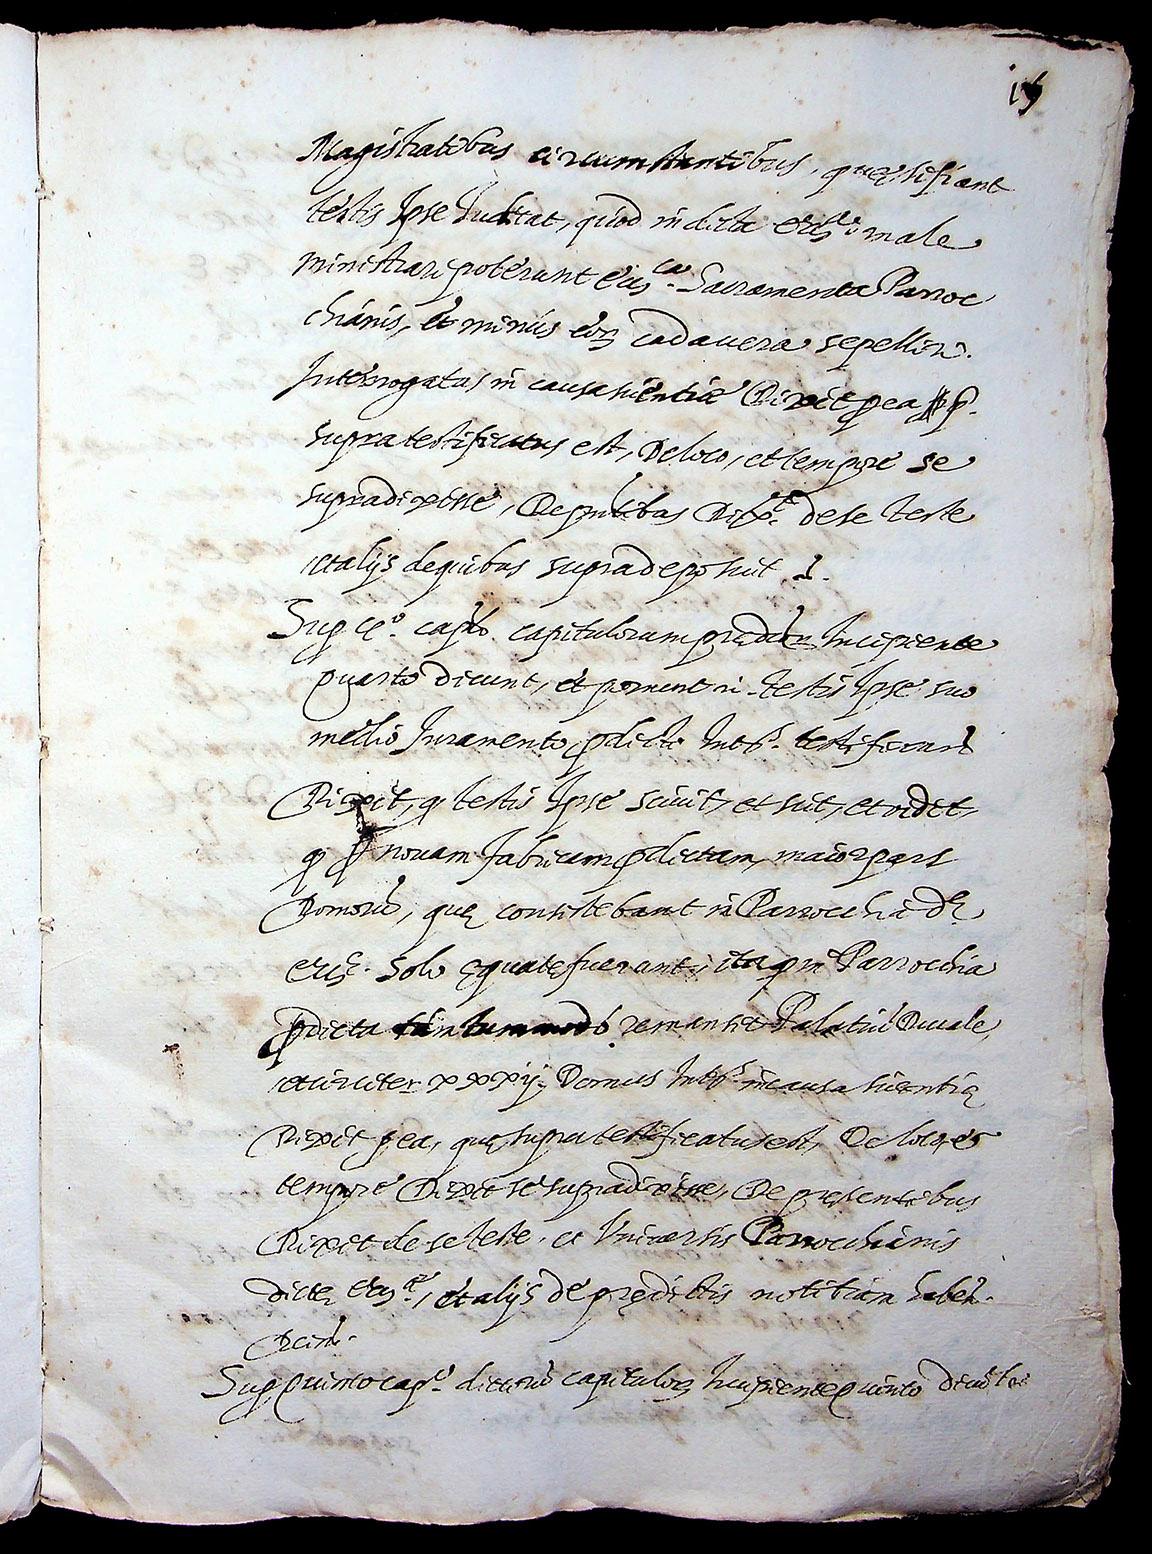 15
Magistratibus circumstantibus, que si fiant
testis Ipse Iudicat, quod in dicta Ecclᵃ male
ministrari poterunt Ecclᶜᵃ Sacramenta Parroc
chianis, et minus eoꝝ cadauera sepelliri.
Interrogatus in causa scientiæ Dixit ꝑ ea ꝓꝑ
supra testificatus est, De loco, et tempore se
supradixisse, De pntibus Dixᵗ de se teste
et alijs de quibus supra deposuit
Sup 4ᵒ. capᵗᵒ. capitulorum prędictoꝝ Incipiente
quarto dicunt, et ponunt testis Ipse suo
medio Iuramento pdicto Intᵗ. testificari
Dixit, ꝙ testis Ipse sciuit, et scit, et vidit,
ꝙ ꝑ nouam fabricam pdictam, maior pars
Domorũ, quę consistebant in Parrochia dᵉ
Ecclᵉ. solo ęquatę fuerant, ita ꝙ in Parrochia
pdicta tantummodo remansit Palatiũ Ducale,
et circiter xxxij. Domus Intᵗ in causa scientię
Dixit ꝑ ea, quę supra testificatus est, De loco, et
tempore Dixit se supradixisse, De presentibus
Dixit de se teste, et Vniuersis Parrocchianis
dictę Ecclᵉ, et alijs de prędictis notitiam haben.
Sup quinto capᵒ. dictorũ capituloꝝ Incipiente quinto